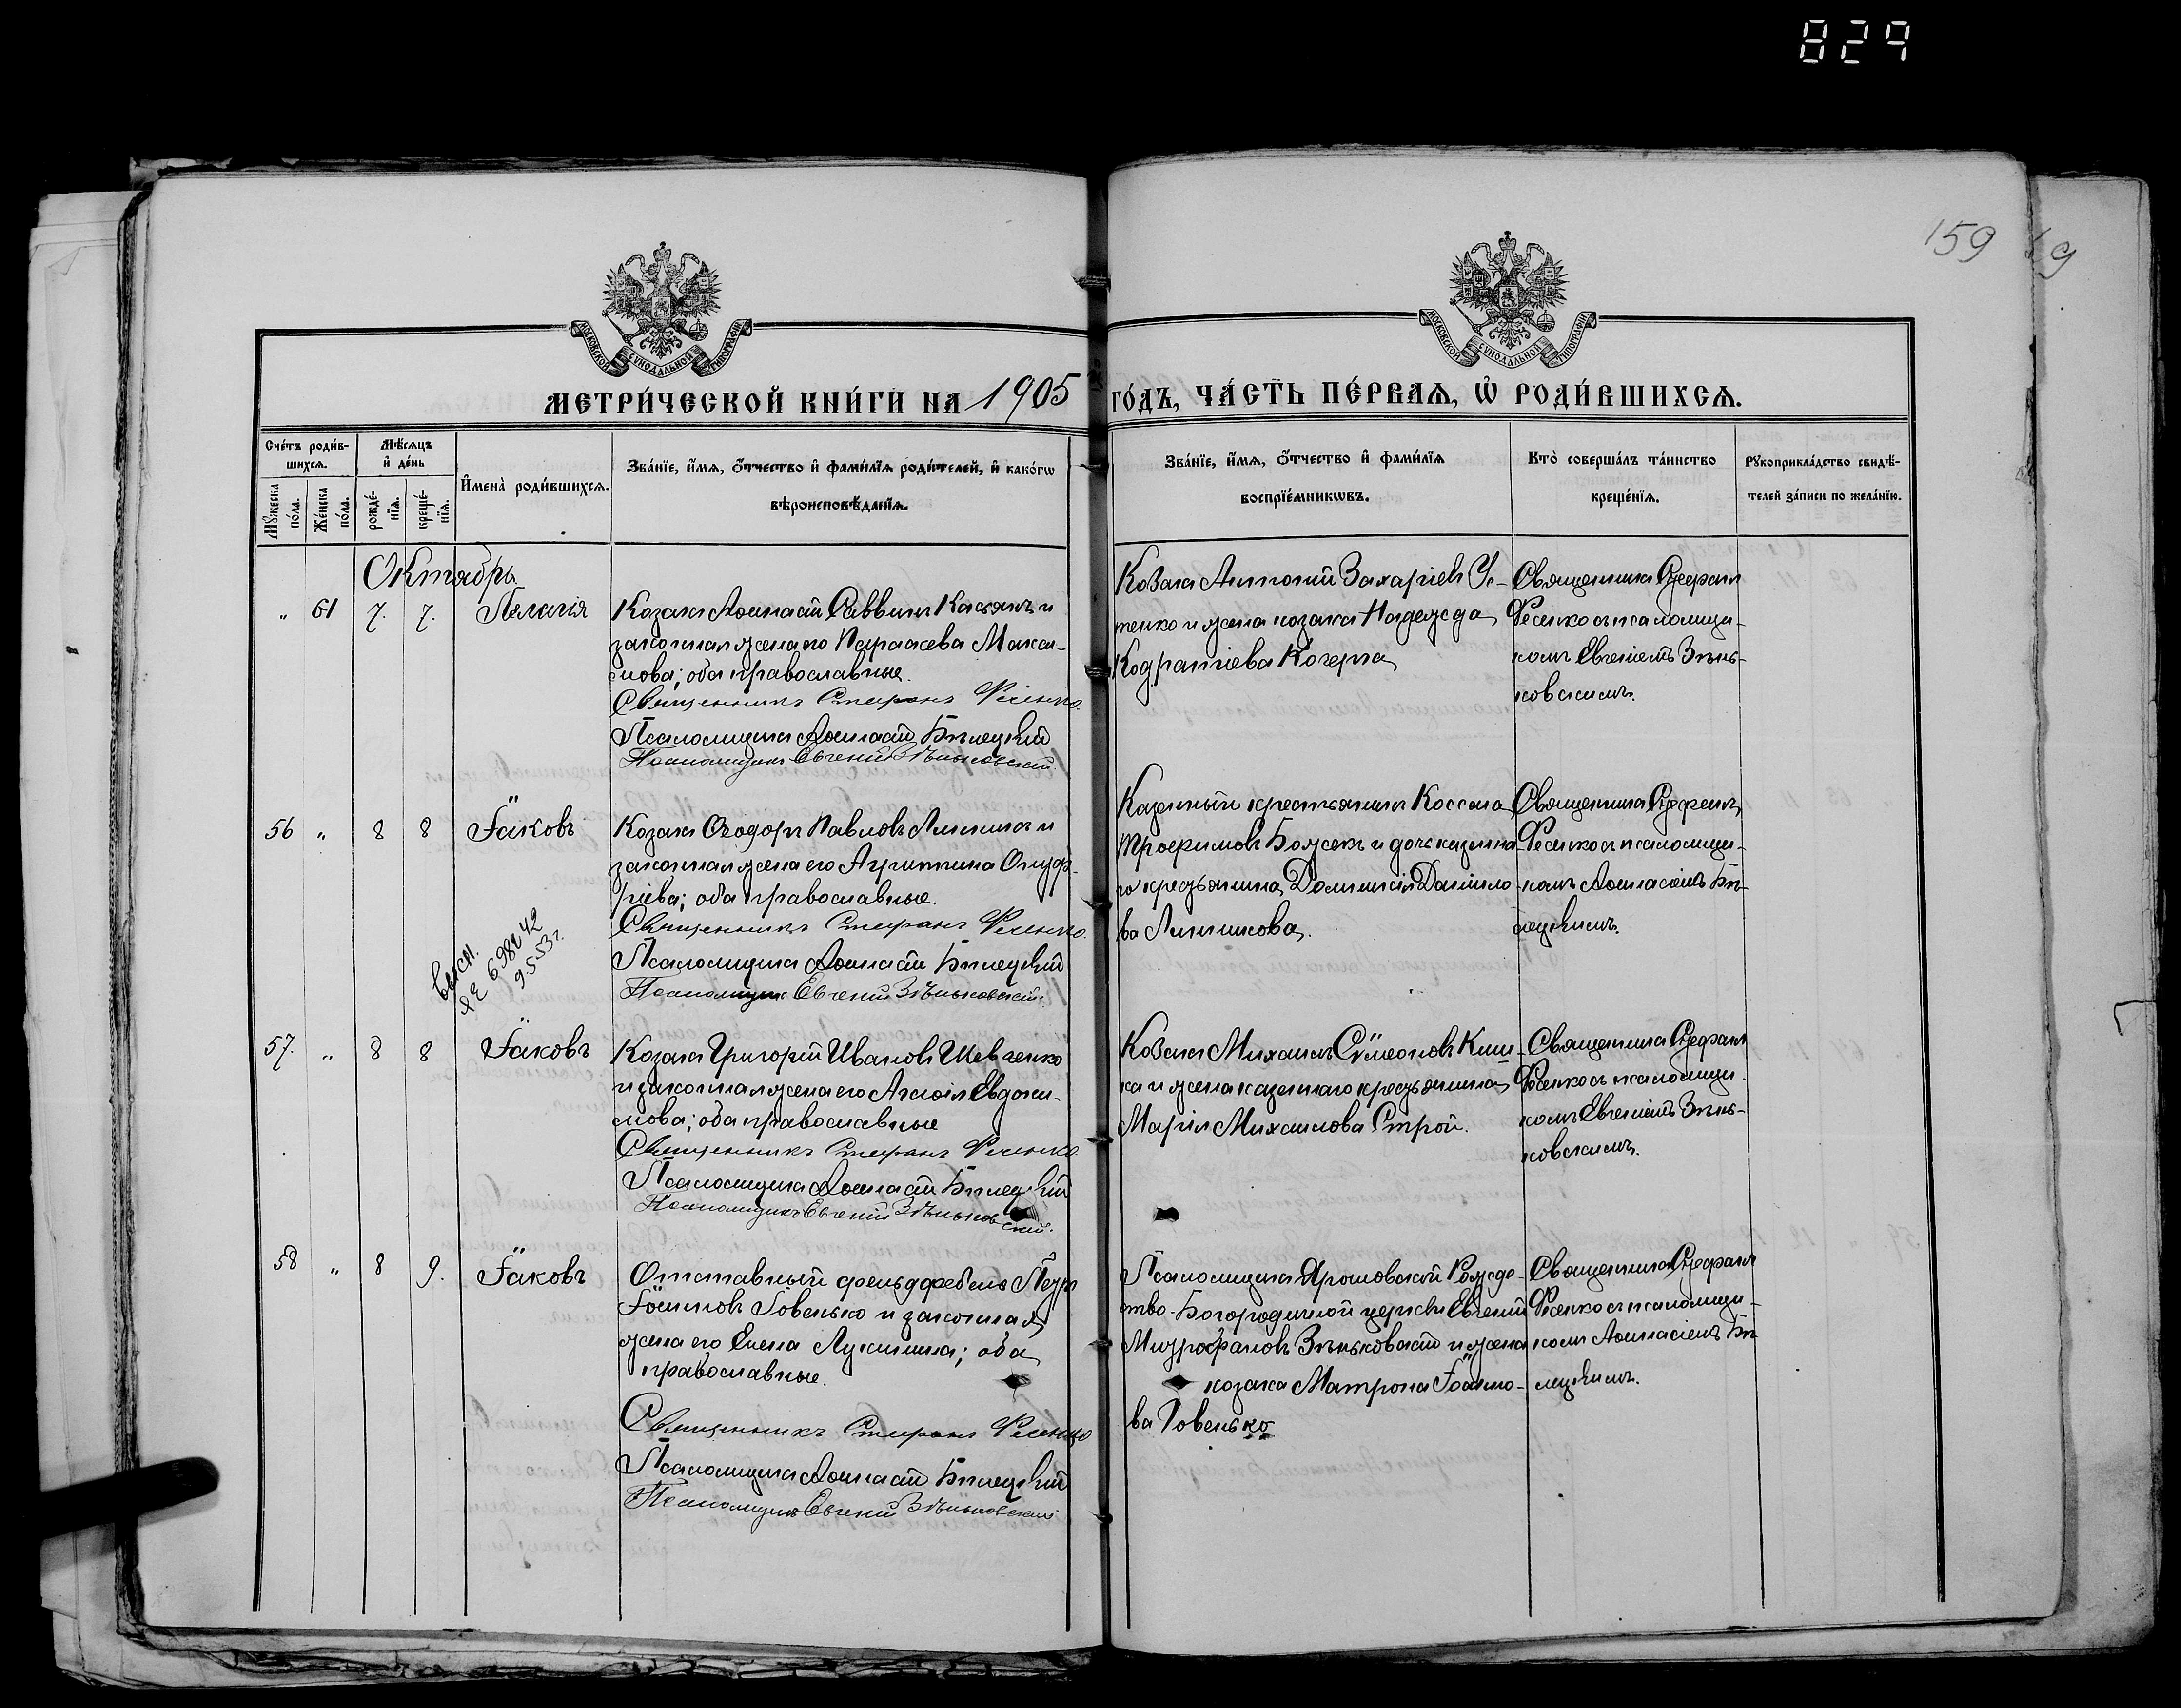 829
159
9
МОСКОВСКОЙ СѴНОДАЛЬНОЙ ТИПОГРАФІИ
МОСКОВСКОЙ СѴНОДАЛЬНОЙ ТИПОГРАФІИ
МЕТРИ́ЧЕСКОЙ КНИ́ГИ НА 1905
ГО́ДЪ, ЧА́СТЬ ПЕ́РВАѦ, Ѡ҆ РОДИ́ВШИХСѦ.
Сче́тъ роди́в-
шихсѧ.
Мꙋ́жеска по́ла.
Же́нска по́ла.
Мѣ́сѧцъ и҆ де́нь
рожде́-
нїѧ.
креще́-
нїѧ.
И҆мена̀ роди́вшихсѧ.
Зва́нїе, и҆́мѧ, ѻ҆́тчество и҆ фами́лїѧ роди́телей, и҆ како́гѡ
вѣроисповѣ́данїѧ.
Зва́нїе, и҆́мѧ, ѻ҆́тчество и҆ фами́лїѧ
воспрїе́мникѡвъ.
Кто̀ соверша́лъ та́инство
креще́нїѧ.
Рꙋкоприкла́дство свидѣ́-
телей за́писи по жела́нїю.
Октябрь
„ 61 7. 7. Пелагія
Козакъ Аѳанасій Саввинъ Касьянъ и
законная жена его Параскева Макси-
мова; оба православные.
Священникъ Стефанъ Фесенко.
Псаломщикъ Аѳанасій Бѣлецкій
Псаломщикъ Евгеній Зѣньковскій.
Козакъ Антоній Захаріевъ Ус-
тенко и жена козака Надежда
Кодратіева Кочерга
Священникъ Стефанъ
Фесенко съ псаломщи-
комъ Евгеніемъ Зѣнь-
ковскимъ.
56 „ 8 8 Іаковъ
Козакъ Ѳеодоръ Павловъ Линникъ и
законная жена его Агриппина Онуф-
ріева; оба православные.
Священникъ Стефанъ Фесенко.
Псаломщикъ Аѳанасій Бѣлецкій
Псаломщикъ Евгеній Зѣньковскій.
698242
9-5-53 г.
Казенный крестьянинъ Косьма
Трофимовъ Божекъ и дочь казенна-
го крестьянина Домникія Данило-
ва Линникова.
Священникъ Стефанъ
Фесенко съ псаломщи-
комъ Аѳанасіемъ Бѣ-
лецкимъ.
57. „ 8 8 Іаковъ
Козакъ Григорій Ивановъ Шевченко
и законная жена его Агаѳія Евдоки-
мова; оба православные
Священникъ Стефанъ Фесенко
Псаломщикъ Аѳанасій Бѣлецкій
Псаломщикъ Евгеній Зѣньковскій.
Козакъ Михаилъ Сѵмеоновъ Киш-
ка и жена казеннаго крестьянина
Марія Михаилова Строй.
Священникъ Стефанъ
Фесенко съ псаломщи-
комъ Евгеніемъ Зѣнь-
ковскимъ.
58 „ 8 9. Іаковъ
Отставный фельдфебель Петръ
Іоанновъ Говенько и законная
жена его Елена Лукинина; оба
православные.
Священникъ Стефанъ Фесенко
Псаломщикъ Аѳанасій Бѣлецкій
Псаломщикъ Евгеній Зѣньковскій
Псаломщикъ Ярошовской Рожде-
ство-Богородичной церкви Евгеній
Митрофановъ Зѣньковскій и жена
козака Матрона Іоанно-
ва Говенько
Священникъ Стефанъ
Фесенко съ псаломщи-
комъ Аѳанасіемъ Бѣ-
лецкимъ.